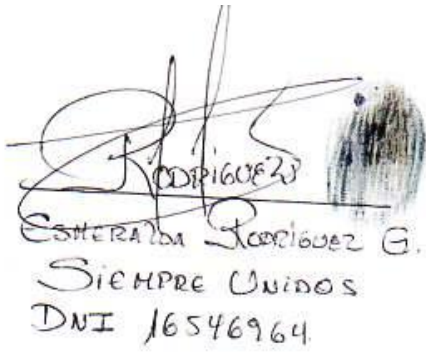 Rodríguez
Esmeralda Rodríguez G.
Siempre Unidos
DNI 16546964